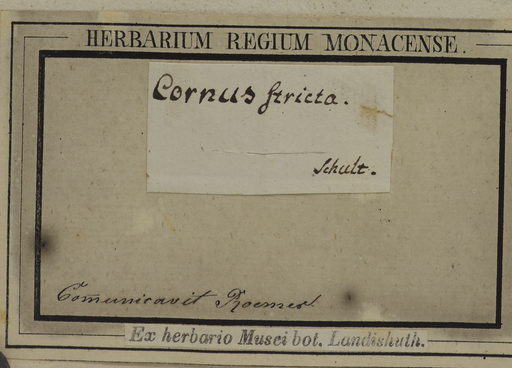 HERBARIUM REGIUM MONACENSE.
Cornus stricta.
Schult.
Comunicavit Roemer.
Ex herbario Musei bot. Landishuth.